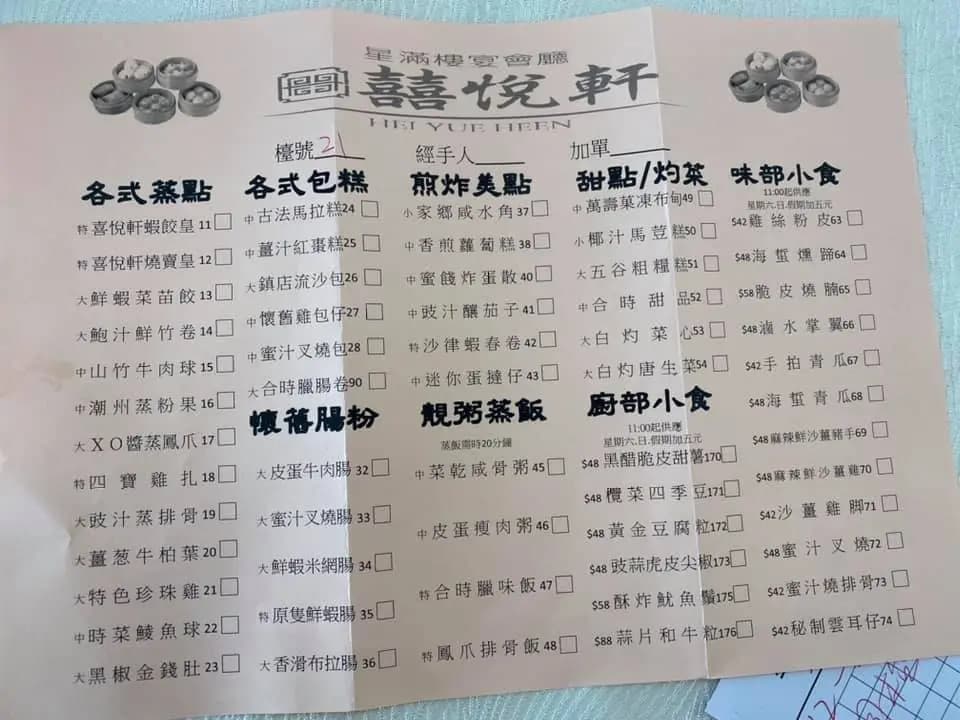 星滿樓宴會廳
囍悅軒
HEI YUE HEEN
檯號21 經手人 加單
各式蒸點
特喜悅軒蝦餃皇11
特喜悅軒燒賣皇12
大鮮蝦菜苗餃13
大鮑汁鮮竹卷14
中山竹牛肉球15
中潮州蒸粉果16
大XO醬蒸鳳爪17
特四寶雞扎18
大豉汁蒸排骨19
大薑葱牛柏葉20
大特色珍珠雞21
中時菜鯪魚球22
大黑椒金錢肚23
各式包糕
中古法馬拉糕24
中薑汁紅棗糕25
大鎮店流沙包26
中懷舊雞包仔27
中蜜汁叉燒包28
大合時臘腸卷90
懷舊腸粉
大皮蛋牛肉腸32
大蜜汁叉燒腸33
大鮮蝦米網腸34
特原隻鮮蝦腸35
大香滑布拉腸36
煎炸美點
小家鄉咸水角37
中香煎蘿蔔糕38
中蜜餞炸蛋散40
中豉汁釀茄子41
特沙律蝦春卷42
中迷你蛋撻仔43
靚粥蒸飯
蒸飯需時20分鐘
中菜乾咸骨粥45
中皮蛋瘦肉粥46
特合時臘味飯47
特鳳爪排骨飯48
甜點/灼菜
中萬壽菓凍布甸49
小椰汁馬荳糕50
大五谷粗糧糕51
中合時甜品52
大白灼菜心53
大白灼唐生菜54
廚部小食
11:00起供應
星期六.日.假期加五元
$48黑醋脆皮甜薯170
$48欖菜四季豆171
$48黃金豆腐粒172
$48豉蒜虎皮尖椒173
$58酥炸魷魚鬚175
$88蒜片和牛粒176
味部小食
11:00起供應
星期六.日.假期加五元
$42雞絲粉皮63
$48海蜇燻蹄64
$58脆皮燒腩65
$48滷水掌翼66
$42手拍青瓜67
$48海蜇青瓜68
$48麻辣鮮沙薑豬手69
$48麻辣鮮沙薑雞70
$42沙薑雞脚71
$48蜜汁叉燒72
$42蜜汁燒排骨73
$42秘制雲耳仔74